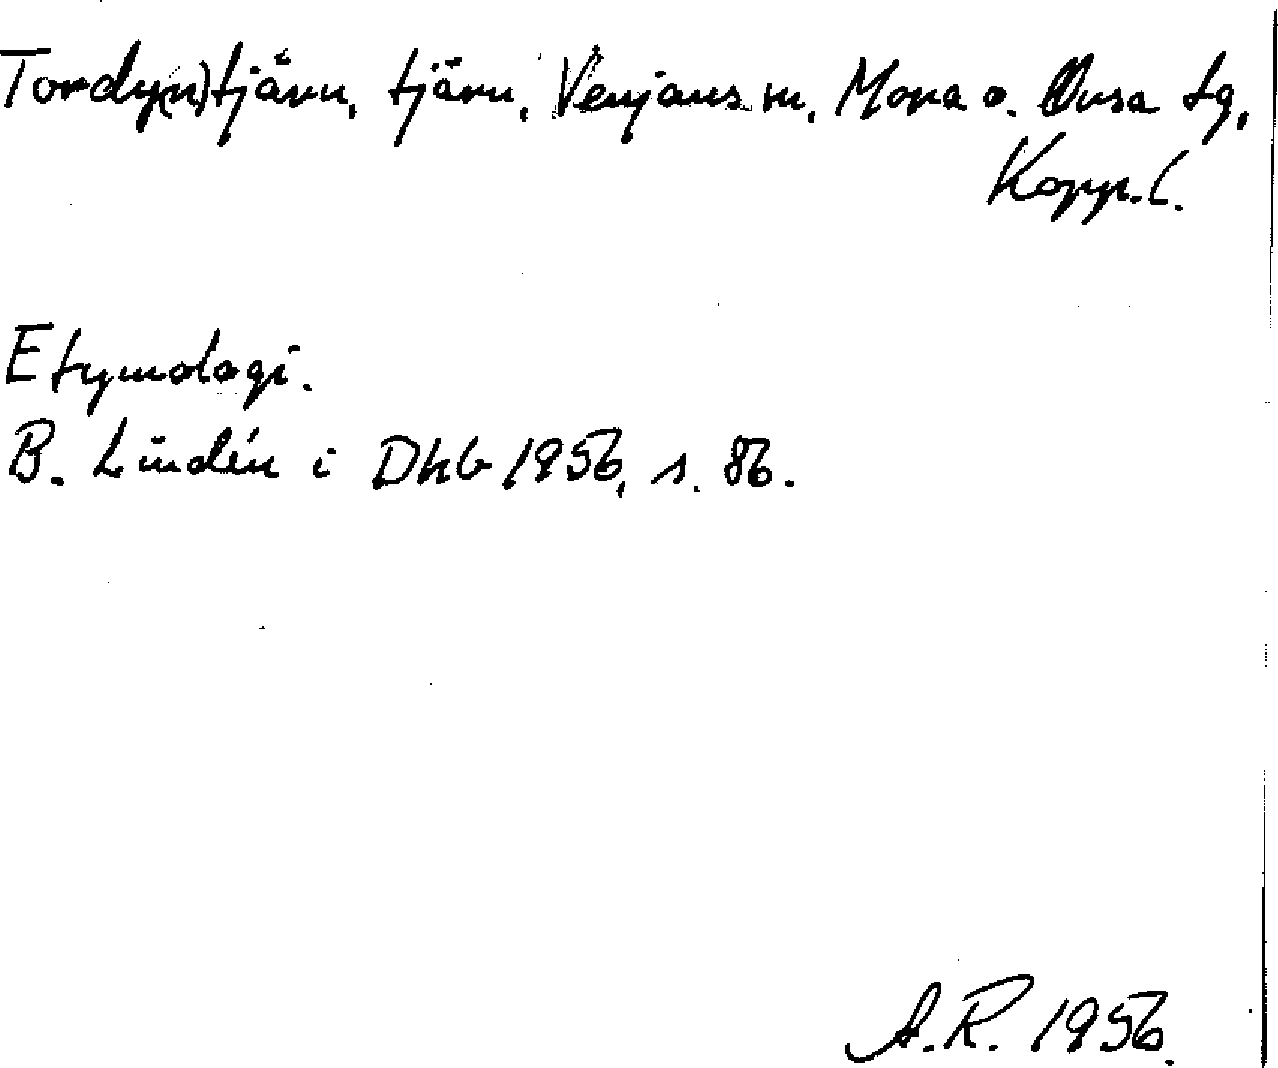 Tordy(n)tjärn, tjärn, Venjans sn, Mora o. Orsa tg,
Kopp. l.
Etymologi.
B. Lindén i DHG 1956, s. 86.
A.R. 1956.